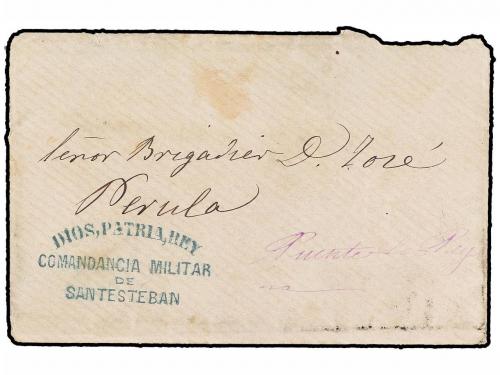 Señor Brigadier D. José
Perula
DIOS, PATRIA, REY
COMANDANCIA MILITAR
DE
SANTESTEBAN
Puente la Rey